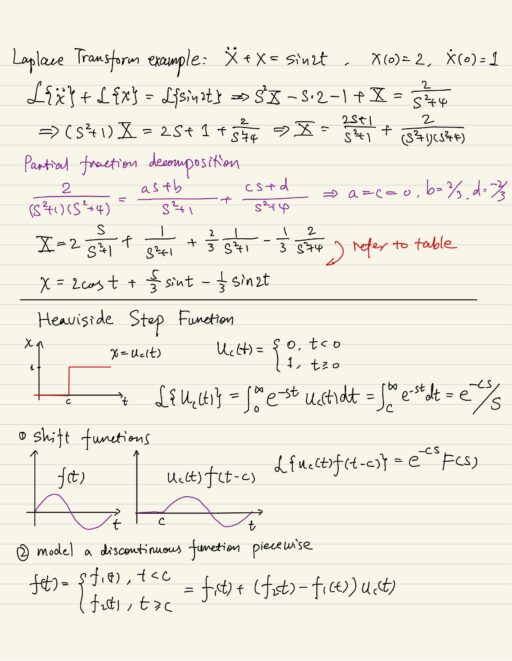 Laplace Transform example: Ẍ + X = sin2t , X(0)=2, Ẋ(0)=1
ℒ{ẍ} + ℒ{x} = ℒ{sin2t} ⇒ S²X - S·2 - 1 + X = 2/(S²+4)
⇒ (S²+1) X = 2S + 1 + 2/(S²+4) ⇒ X = (2S+1)/(S²+1) + 2/((S²+1)(S²+4))
Partial fraction decomposition
2/((S²+1)(S²+4)) = (as+b)/(S²+1) + (cs+d)/(S²+4) ⇒ a=c=0, b=2/3, d=-2/3
X = 2 S/(S²+1) + 1/(S²+1) + 2/3 1/(S²+1) - 1/3 2/(S²+4) refer to table
x = 2cos t + 5/3 sint - 1/3 sin2t
Heaviside Step Function
x 1 c t x=u_c(t) U_c(t) = { 0, t<0
1, t≥0
ℒ{U_c(t)} = ∫₀^∞ e^(-st) u_c(t)dt = ∫_c^∞ e^(-st) dt = e^(-cs)/S
① shift functions
f(t) t u_c(t) f(t-c) c t ℒ{u_c(t)f(t-c)} = e^(-cs) F(s)
② model a discontinuous function piecewise
f(t) = { f₁(t), t<c
f₂(t), t≥c = f₁(t) + (f₂(t) - f₁(t)) u_c(t)